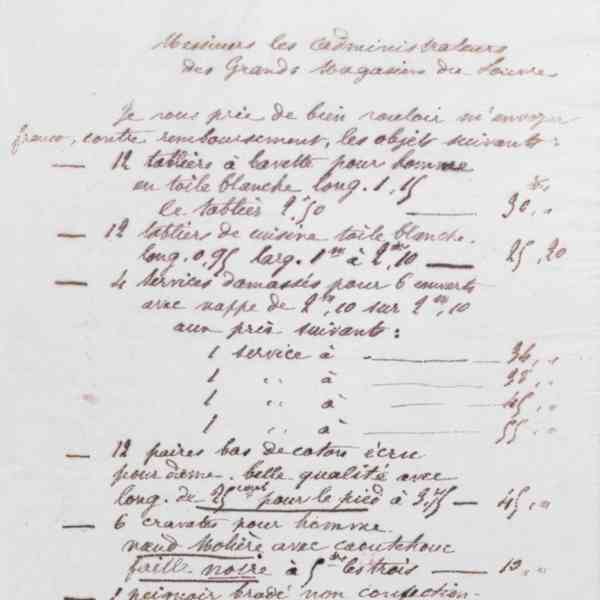 Messieurs les Administrateurs
des Grands Magasins du Louvre
Je vous prie de bien vouloir m'envoyer
franco, contre remboursement, les objets suivants :
— 12 tabliers à bavette pour homme
en toile blanche long. 1,15
le tablier 2,50 — 30,,
— 12 tabliers de cuisine toile blanche.
long. 0,95 larg. 1m à 2,10 — 25,20
— 4 services damassés pour 6 couverts
avec nappe de 2m,10 sur 2m,10
aux prix suivants :
1 service à — 36,,
1 ,, à — 38,,
1 ,, à — 45,,
1 ,, à — 55,,
— 12 paires bas de coton écru
pour dame. belle qualité avec
long. de 25 cent pour le pied à 3,75 — 45,,
— 6 cravates pour homme
nœud Molière avec caoutchouc
faille noire à 5 les trois — 10,,
— 1 peignoir brodé non confection-